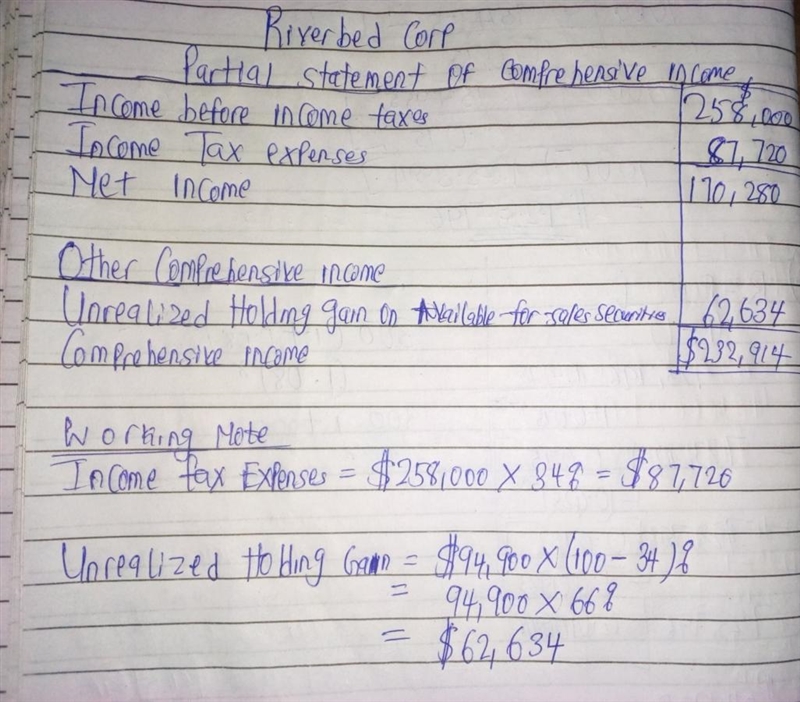 Riverbed Corp
Partial statement of Comprehensive income
Income before income taxes $258,000
Income Tax expenses 87,720
Net income 170,280
Other Comprehensive income
Unrealized Holding gain on Available-for-sales securities 62,634
Comprehensive income $232,914
Working Note
Income tax Expenses = $258,000 × 34% = $87,720
Unrealized Holding Gain = $94,900 × (100 - 34)%
= 94,900 × 66%
= $62,634